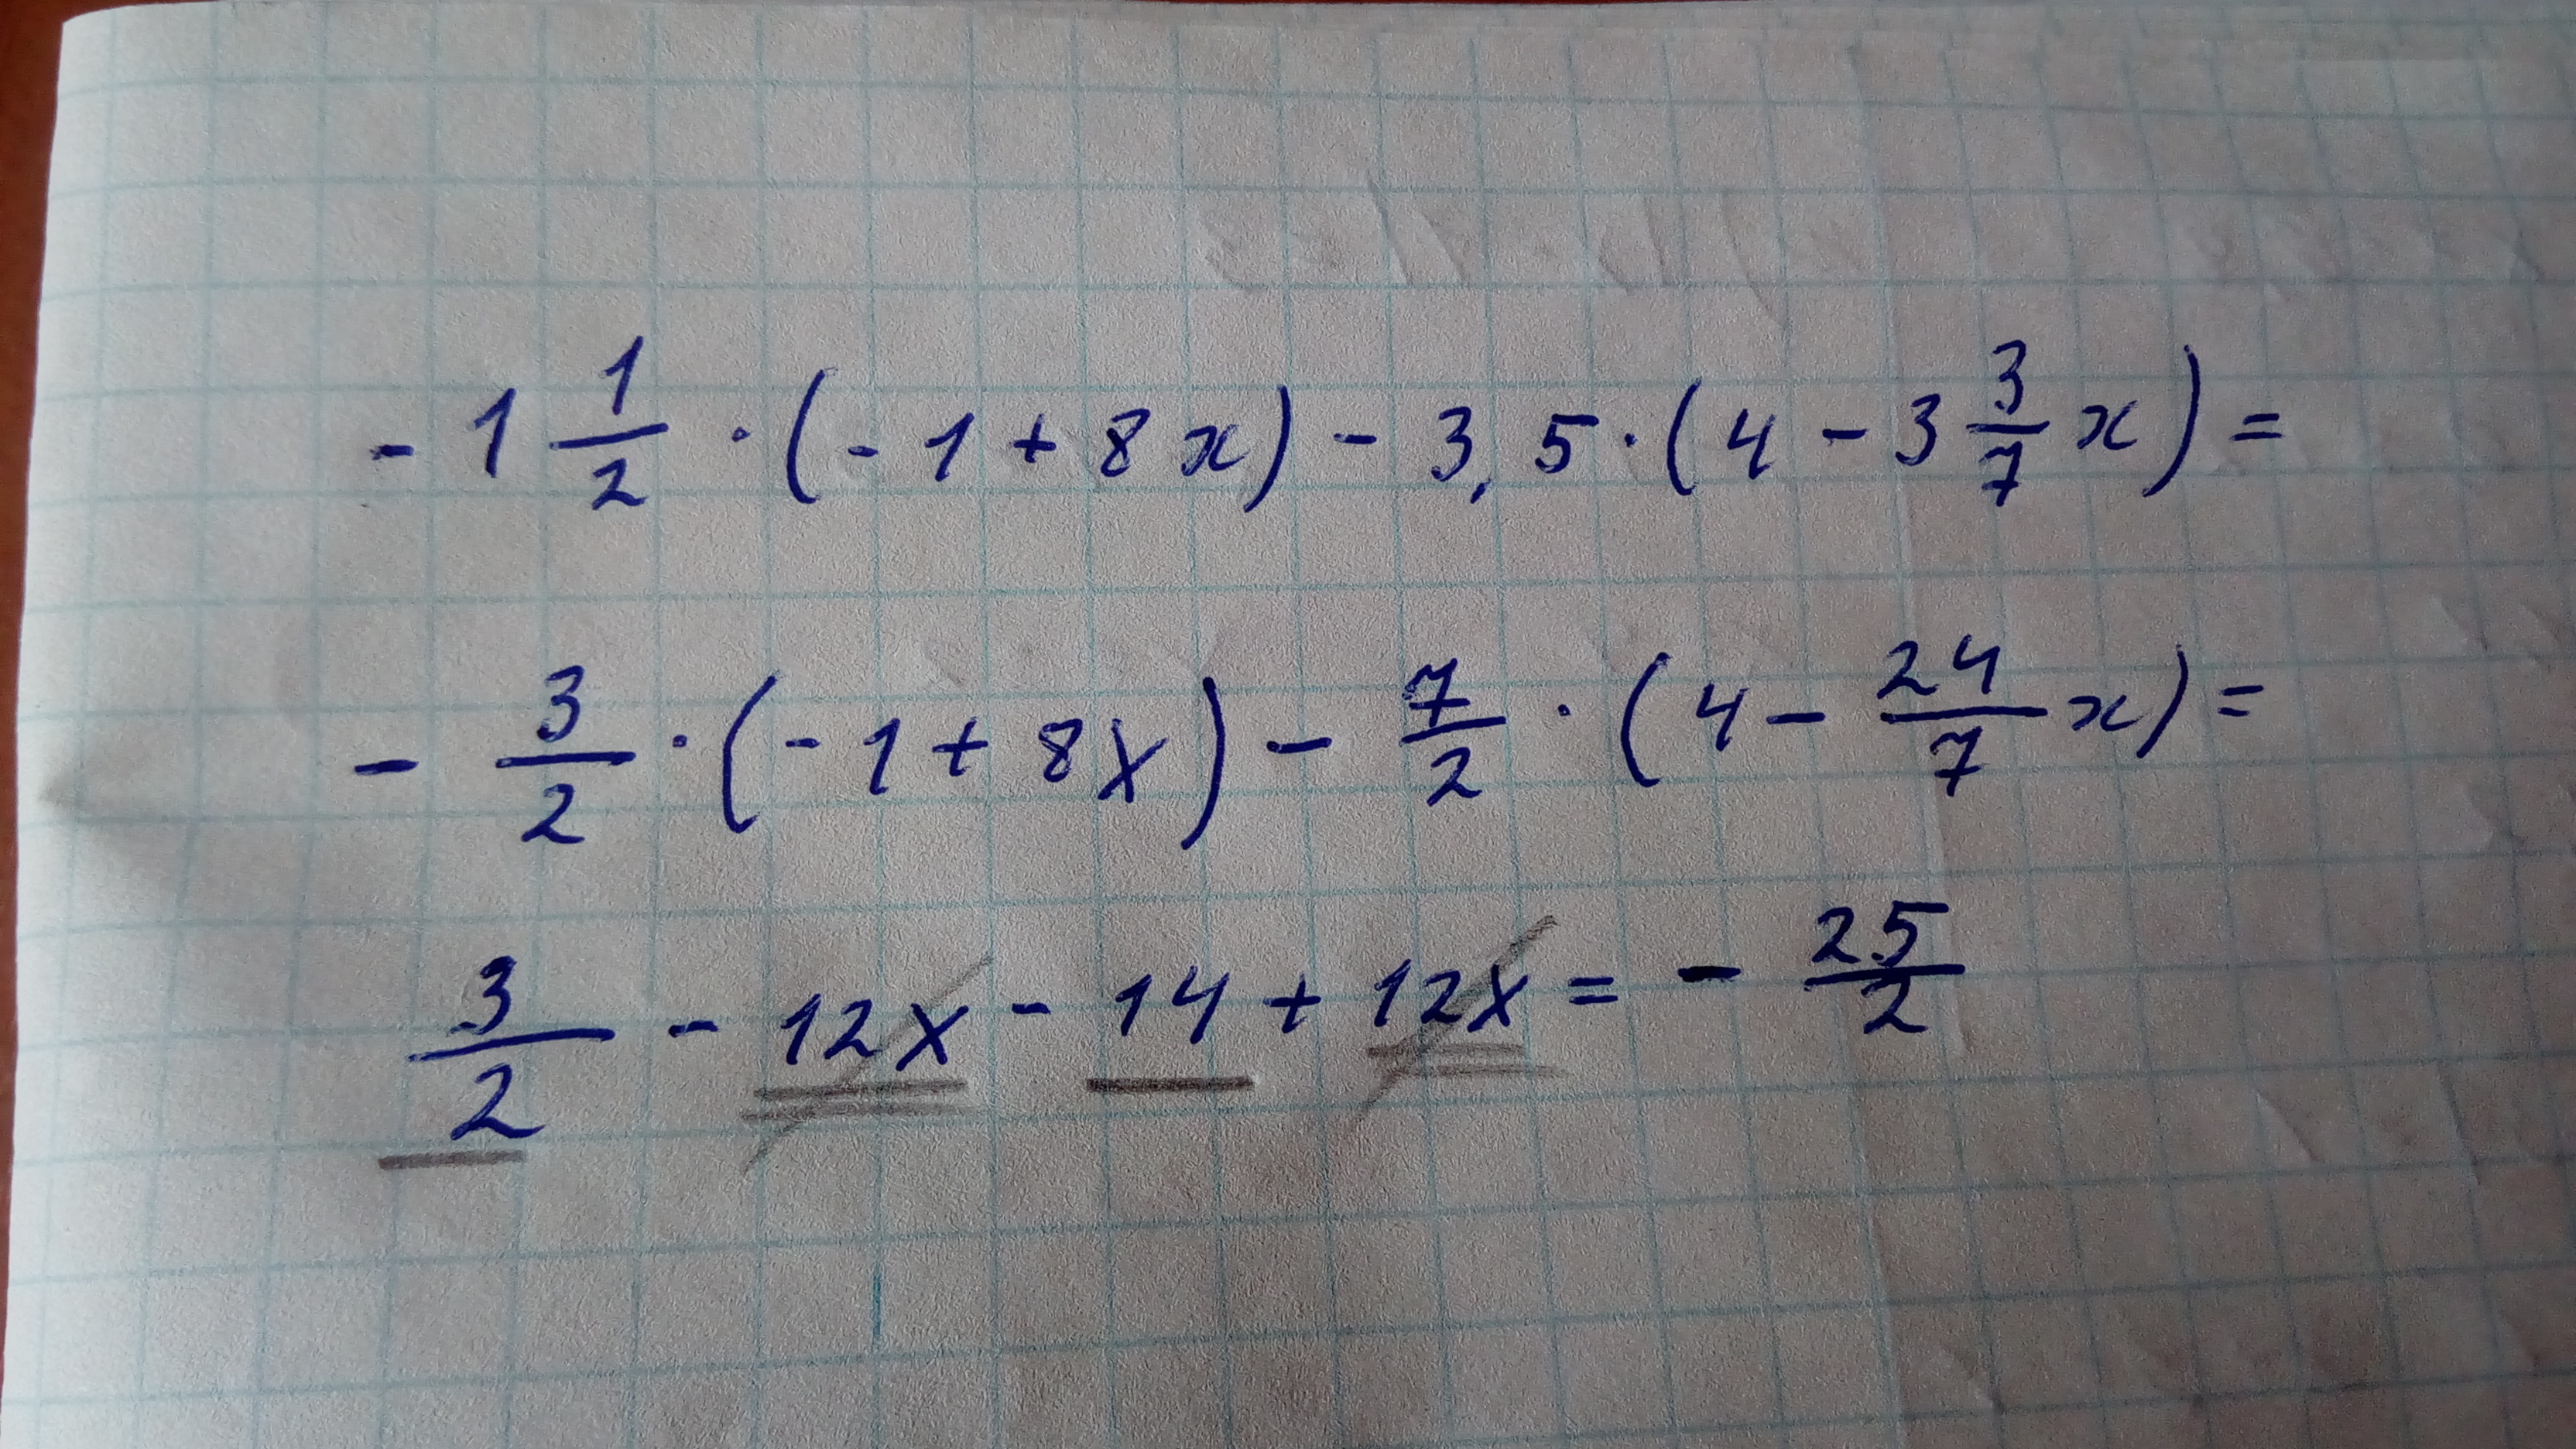 - 1 1/2 · (- 1 + 8 x) - 3,5 · (4 - 3 3/7 x) =
- 3/2 · (- 1 + 8x) - 7/2 · (4 - 24/7 x) =
3/2 - 12x - 14 + 12x = - 25/2